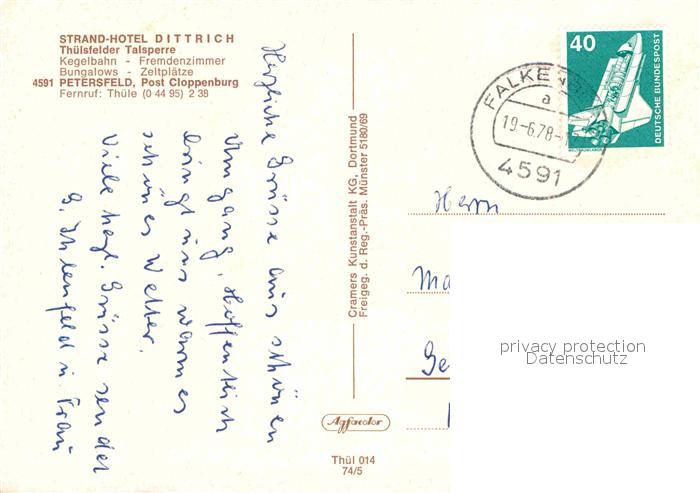 STRAND-HOTEL DITTRICH
Thülsfelder Talsperre
Kegelbahn - Fremdenzimmer
Bungalows - Zeltplätze
4591 PETERSFELD, Post Cloppenburg
Fernruf: Thüle (0 44 95) 2 38
Herzliche Grüsse aus schönen
Umgang, Hoffentlich
bringt uns warmes
schönes Wetter.
Viele herzl. Grüsse sendet
u. Frau
Cramers Kunstanstalt KG, Dortmund
Freigeg. d. Reg.-Präs. Münster 5180/69
Agfacolor
Thül 014
74/5
40
DEUTSCHE BUNDESPOST
WELTRAUMLABOR
FALKEN
a
19.-6.78
4591
Herrn
Ma
Ge
privacy protection
Datenschutz